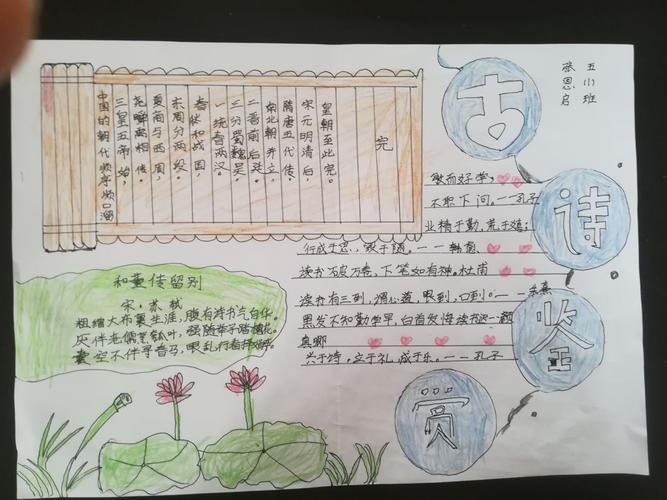 中国的朝代顺序顺口溜
三皇五帝始，
尧舜禹相传。
夏商与西周，
东周分两段。
春秋和战国，
一统秦两汉。
三分蜀魏吴
二晋前后延。
南北朝并立，
隋唐五代传。
宋元明清后，
皇朝至此完。
完
古诗鉴赏
五(1)班
张恩启
敏而好学，
不职下问。——孔子
业精于勤，荒于嬉；
行成于思，毁于随。——韩愈
读书破万卷，下笔如有神。杜甫
读书有三到，谓心到，眼到，口到。——朱熹
黑发不知勤学早，白首发悔读书迟——颜
真卿
兴于诗，立于礼，成于乐。——孔子
和董传留别
宋·苏轼
粗缯大布裹生涯，腹有诗书气自华。
厌伴老儒烹瓠叶，强随举子踏槐花。
囊空不伴寻春马，眼乱行看择婿车